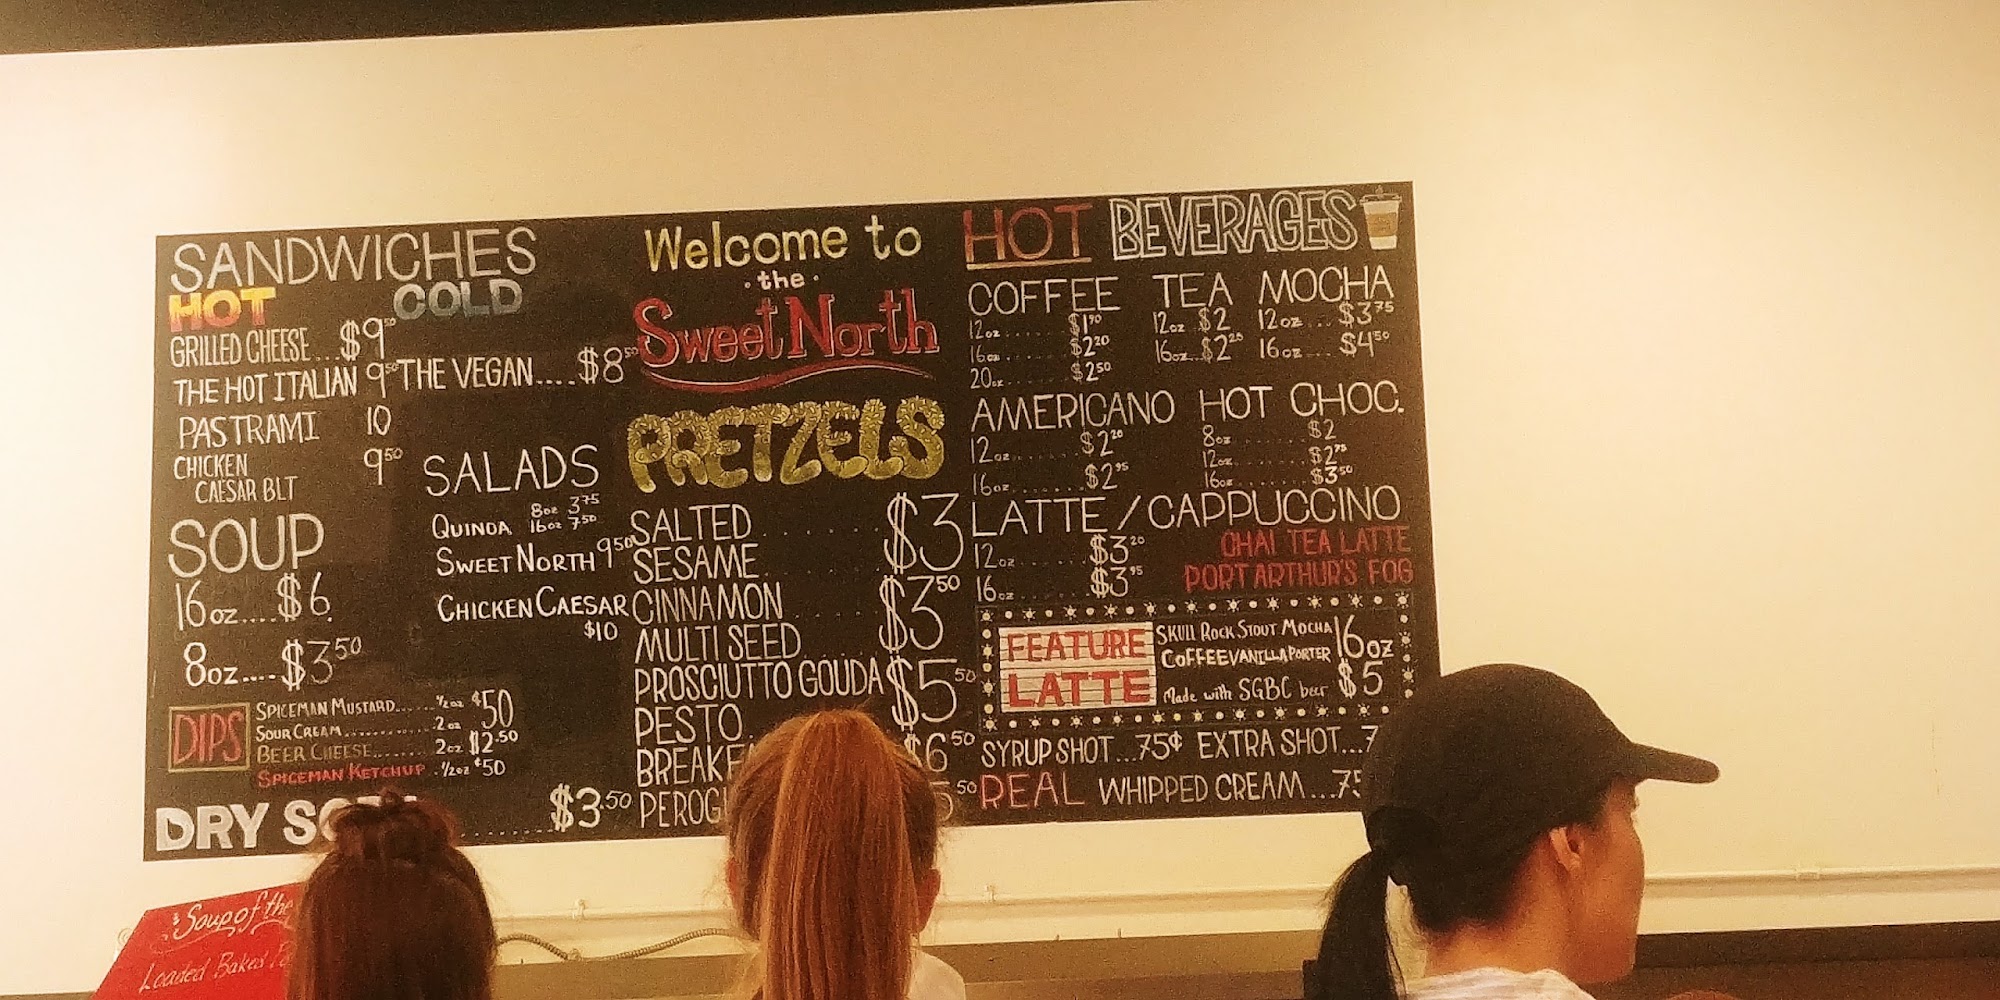 SANDWICHES
HOT COLD
GRILLED CHEESE...$9.50
THE HOT ITALIAN 9.50
PASTRAMI 10
CHICKEN CAESAR BLT 9.50
THE VEGAN....$8.50
SOUP
16oz....$6.
8oz....$3.50
SALADS
QUINOA 8oz 3.75
16oz 7.50
SWEET NORTH 9.50
CHICKEN CAESAR
$10
DIPS
SPICEMAN MUSTARD...... ½oz $.50
SOUR CREAM............. 2 oz
BEER CHEESE........ 2oz $2.50
SPICEMAN KETCHUP . ½oz $.50
DRY $3.50
Welcome to
·the·
Sweet North
PRETZELS
SALTED $3
SESAME
CINNAMON $3.50
MULTI SEED
PROSCIUTTO GOUDA $5.50
PESTO
$6.50
HOT BEVERAGES
COFFEE
12oz $1.90
16oz $2.20
20oz $2.50
TEA
12oz $2
16oz $2.20
MOCHA
12oz... $3.75
16oz... $4.50
AMERICANO
12oz $2.20
16oz $2.95
HOT CHOC.
8oz $2
12oz $2.75
16oz $3.50
LATTE / CAPPUCCINO
12oz $3.20
16oz $3.95
CHAI TEA LATTE
PORT ARTHUR'S FOG
FEATURE
LATTE
SKULL ROCK STOUT MOCHA
COFFEE VANILLA PORTER
Made with SGBC beer
16oz
$5
SYRUP SHOT...75¢ EXTRA SHOT...
REAL WHIPPED CREAM...
Soup of the
Loaded Baked